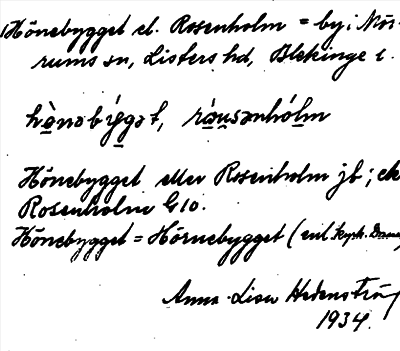 Hönebygget el. Rosenholm = by i Mör-
rums sn, Listers hd, Blekinge l.
hò̱nəbýg̱gət, rǻu̱sənhólm
Hönebygget eller Rosenholm jb; ek
Rosenholm G 10.
Hönebygget = Hörnebygget (enl. kyrk.
Anna-Lisa Hedenström
1934.